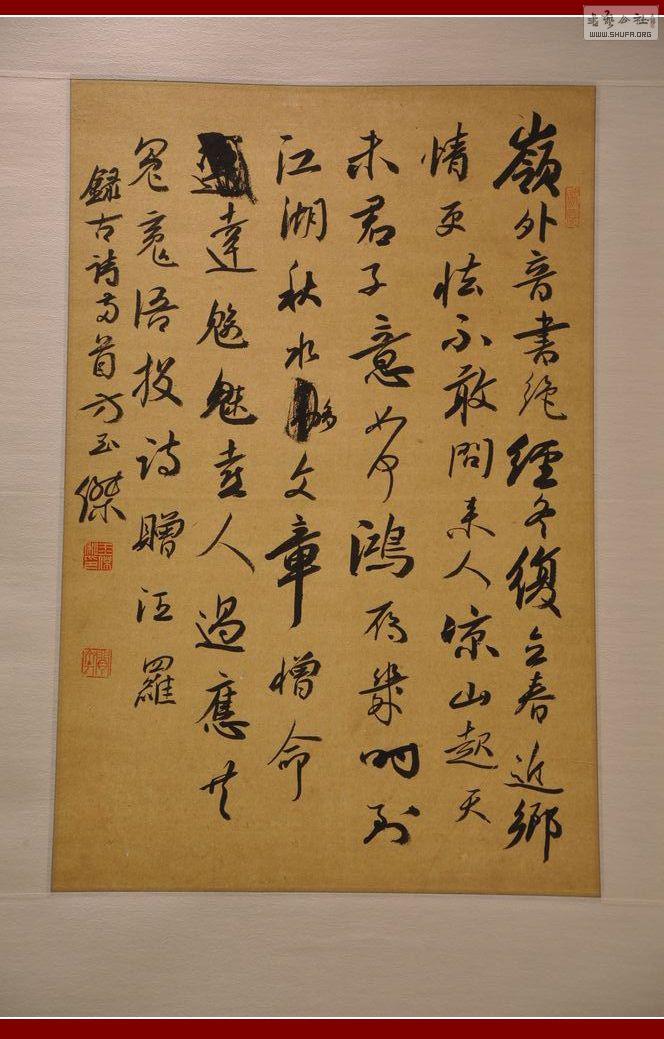 嶺外音書絕經冬復立春近鄉
情更怯不敢問來人涼山起天
末君子意如何鴻雁幾時到
江湖秋水多文章憎命
達魑魅喜人過應共
冤魂語投詩贈汨羅
錄古詩兩首方玉傑
书艺公社
WWW.SHUFA.ORG